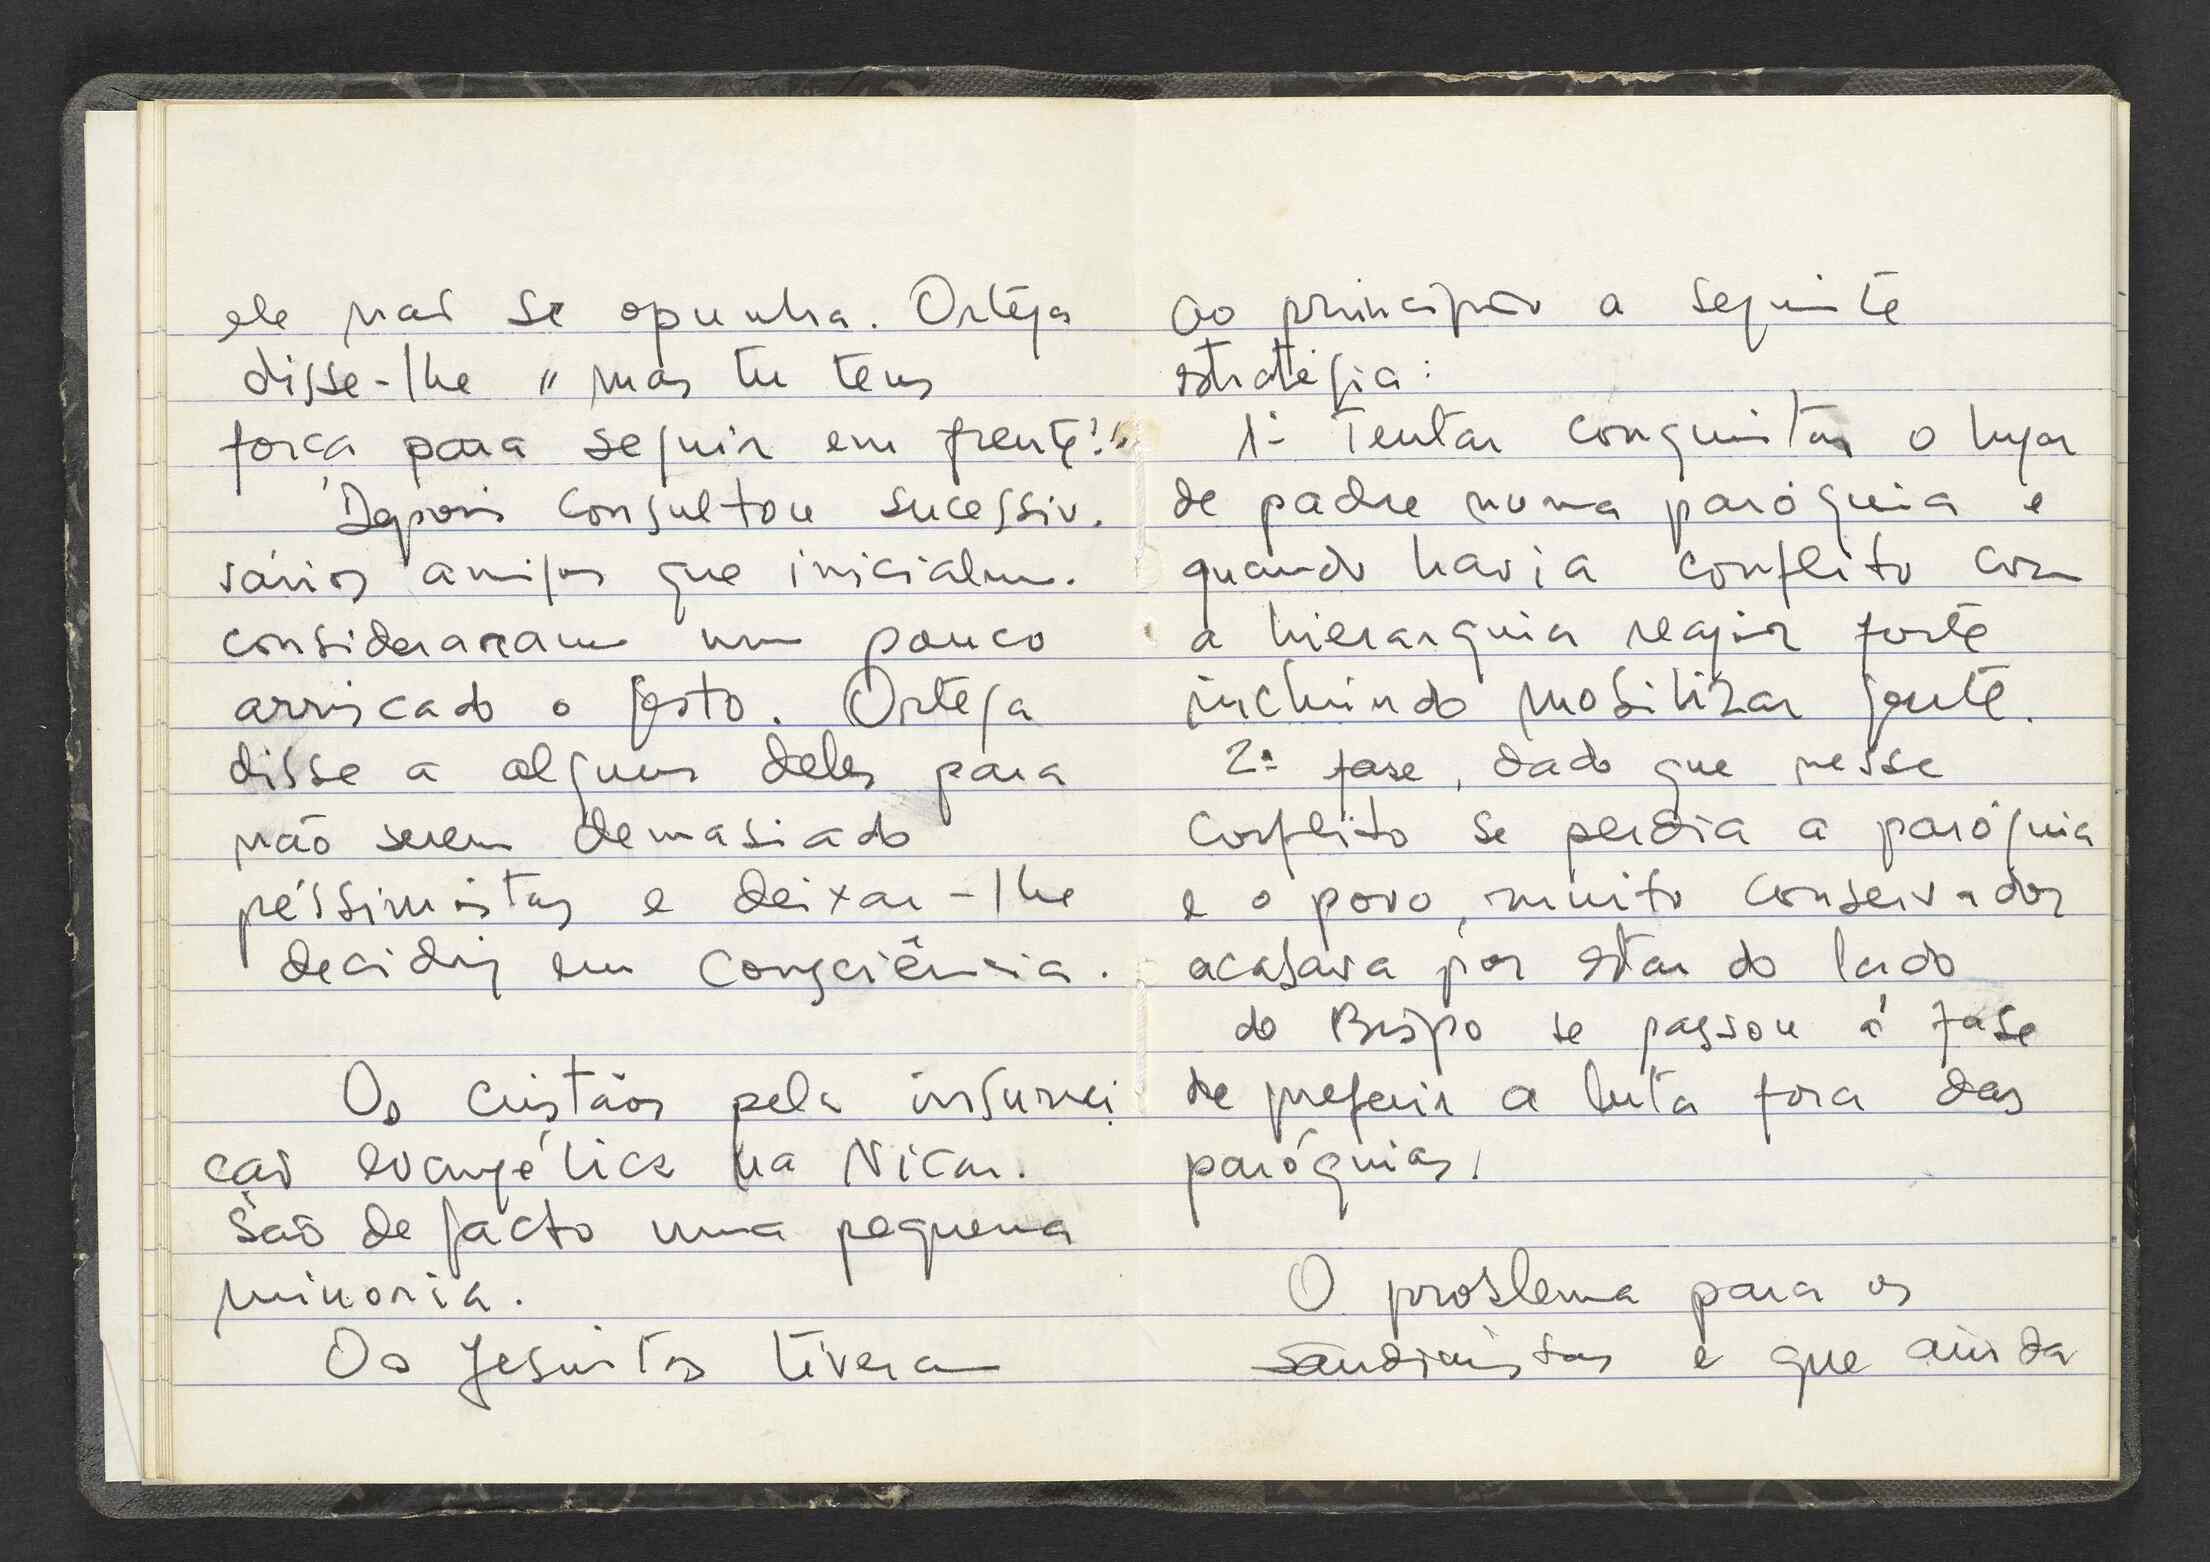 ele não se opunha. Ortega
disse-lhe "mas tu tens
força para seguir em frente!"
Depois consultou sucessiv.
vários amigos que inicialm.
consideraram um pouco
arriscado o gesto. Ortega
disse a alguns deles para
não serem demasiado
péssimistas e deixar-lhe
decidir em consciência.
Os cristãos pela insurrei
ção evangélica na Nicar.
São de facto uma pequena
minoria.
Os Jesuitas tiveram
ao princípio a seguinte
estratégia:
1º Tentar conquistar o lugar
de padre numa paróquia e
quando havia conflito com
a hierarquia reagir forte
incluindo mobilizar gente.
2ª fase, dado que nesse
conflito se perdia a paróquia
e o povo, muito conservador
acabava por estar do lado
do Bispo se passou á fase
de preferir a luta fora das
paróquias.
O problema para os
sandinistas é que ainda